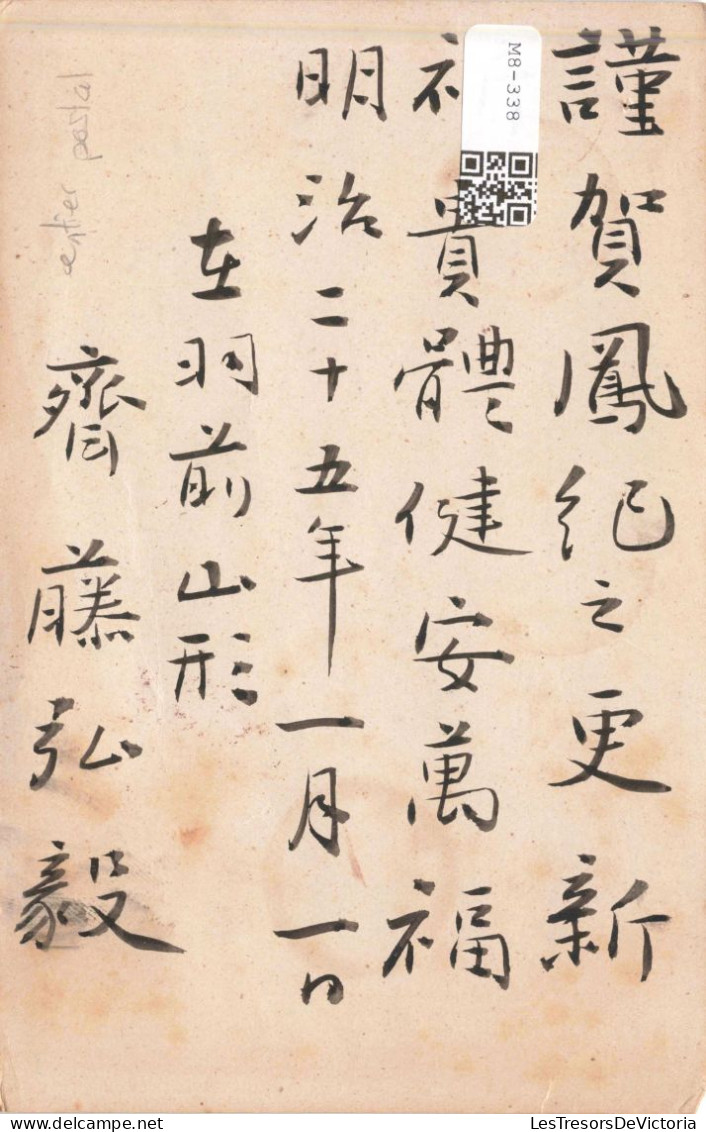 謹賀鳳紀之更新
貴體健安萬福
明治二十五年一月一日
在羽前山形
齊藤弘毅
entier postal
M8-338
LesTresorsDeVictoria
delcampe.net